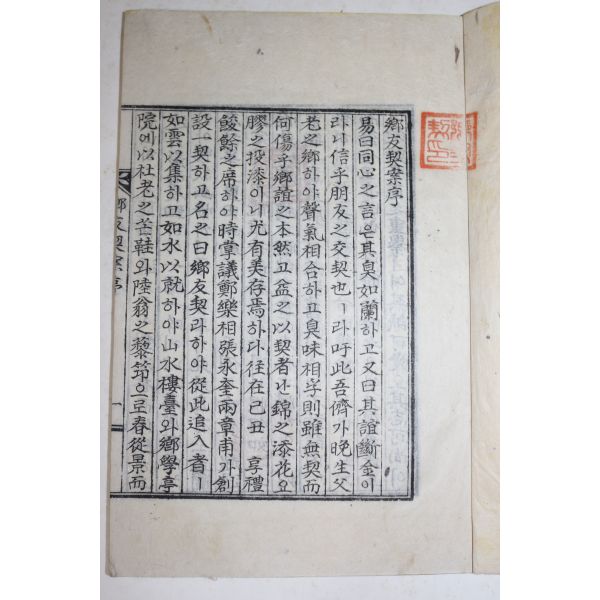 鄕友契案序
易曰同心之言은其臭如蘭하고又曰其誼斷金이
라니信乎朋友之交契也ㅣ라吁此吾儕가晩生父
老之鄕하야聲氣相合하고臭味相孚則雖無契而
何傷乎鄕誼之本然고益之以契者난錦之添花요
膠之投漆이니尤有美存焉하다徃在己丑享禮
餕餘之席하야時掌議鄭樂相張永奎兩章甫가創
設一契하고名之曰鄕友契라하야從此追入者ㅣ
如雲以集하고如水以就하야山水樓臺와鄕學亭
院에以社老之芒鞋와陸翁之藜筇으로春從景而
鄕友契案序
一